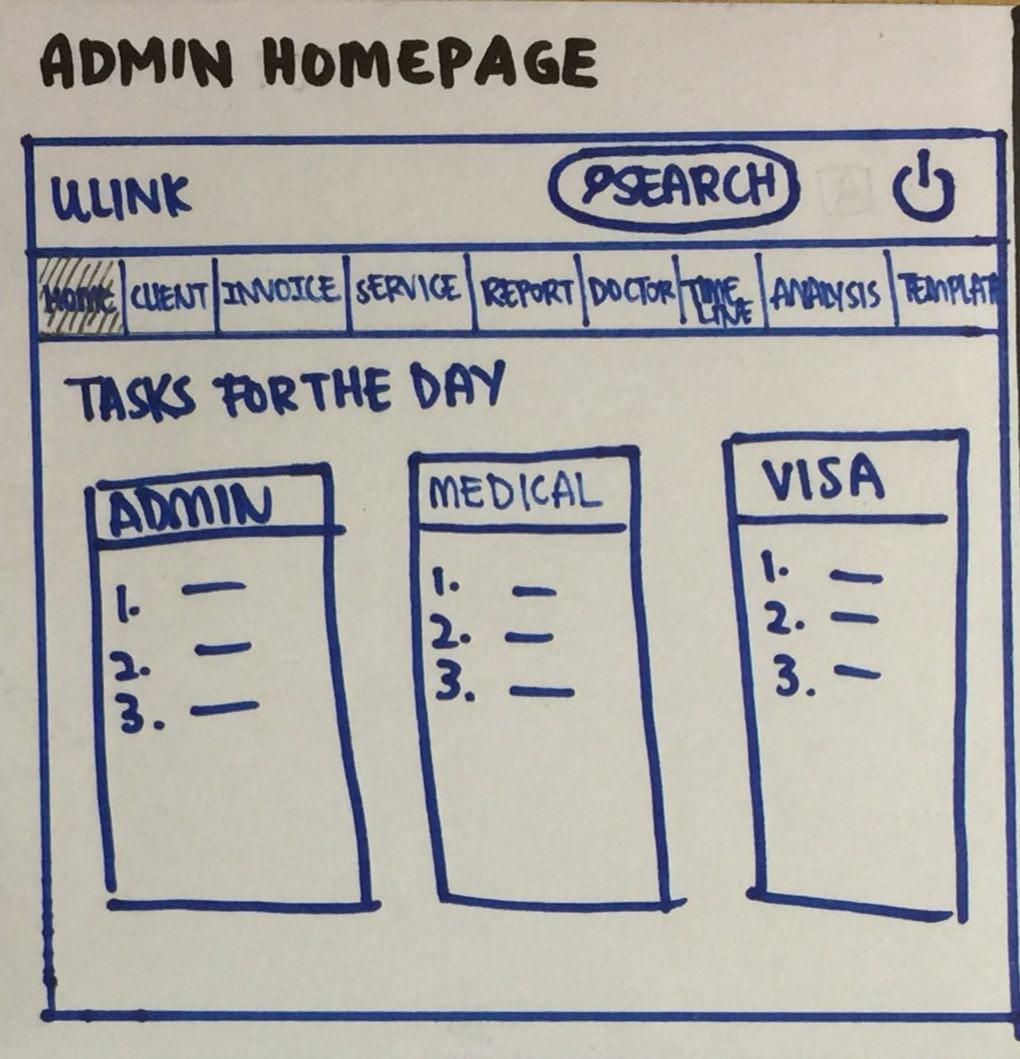 ADMIN HOMEPAGE
ULINK
SEARCH
HOME CLIENT INVOICE SERVICE REPORT DOCTOR TIME LINE ANALYSIS TEMPLAT
TASKS FOR THE DAY
ADMIN MEDICAL VISA
1. 1. 1.
2. 2. 2.
3. 3. 3.